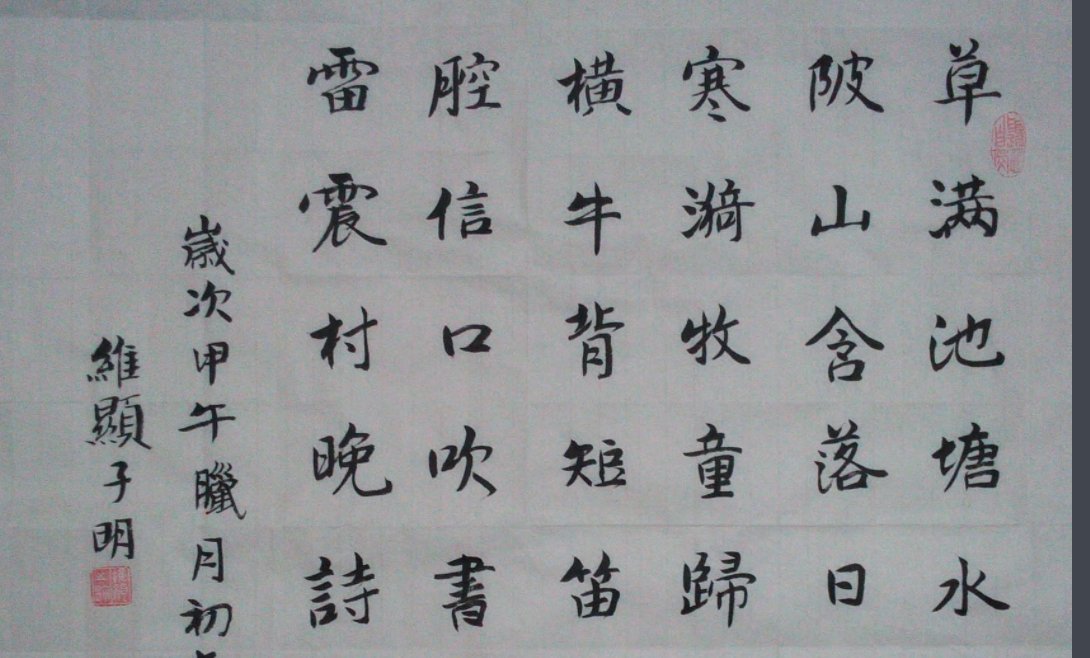 草满池塘水
陂山含落日
寒漪牧童歸
横牛背短笛
腔信口吹書
雷震村晚詩
歲次甲午臘月初
維顯子明